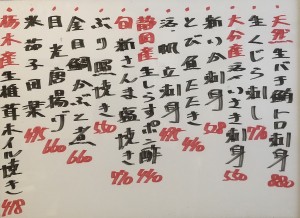 天然生バチ鮪トロ刺身 880
生くじら刺し 770
大分産活〆いさき刺身 550
新いか刺身 528
とびうおたたき 440
活〆帆立刺身 440
静岡産生しらすポン酢 440
旬新さんま塩焼き 770
ぶり照焼き 550
金目鯛かぶと煮 660
目光唐揚げ 660
米茄子田楽 495
栃木産生椎茸ホイル焼き 418